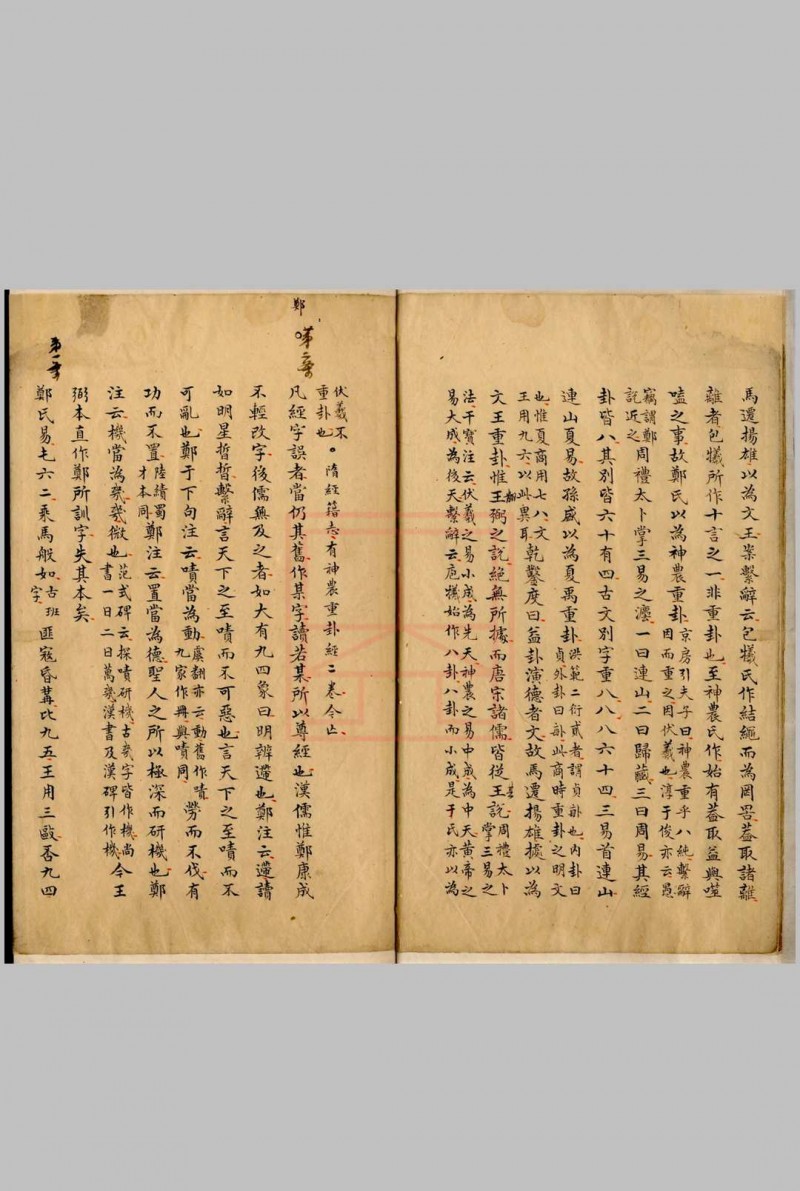 馬遷揚雄以為文王案繫辭云包犧氏作結繩而為罔罟蓋取諸離
離者包犧所作十言之一非重卦也至神農氏作始有蓋取益與噬
嗑之事故鄭氏以為神農重卦京房引夫子曰神農重乎八純繫辭
因而重之因伏羲也淳于俊亦云愚
竊謂鄭
說近之周禮太卜掌三易之灋一曰連山二曰歸藏三曰周易其經
卦皆八其別皆六十有四古文別字重八八八六十四三易首連山
連山夏易故孫盛以為夏禹重卦洪範二衍貳者謂貞卦也內卦曰
貞外卦曰卦此商時重卦之明文
也惟夏商用七八文
王用九六以此異耳乾鑿度曰益卦演德者文故馬遷揚雄據以為
文王重卦惟王弼之說絕無所據而唐宗諸儒皆從王說周禮太卜
掌三易之
法干寶注云伏羲之易小成為先天神農之易中成為中天黄帝之
易大成為後天繫辭云庖犧始作八卦八卦而小成是于氏亦以為
伏羲不
重卦也。隋經籍志有神農重卦經二卷今亾
鄭
第二章
凡經字誤者當仍其舊作某字讀若某所以尊經也漢儒惟鄭康成
不輕改字後儒無及之者如大有九四象曰明辨遰也鄭注云遰讀
如明星晢晢繫辭言天下之至嘖而不可惡也言天下之至嘖而不
可亂也鄭于下句注云嘖當為動虞翻亦云動舊作嘖
九家作冊與嘖同勞而不伐有
功而不置陸績蜀
才本同鄭注云置當為德聖人之所以極深而研機也鄭
注云機當為幾幾微也范式碑云探嘖研機古幾字皆作機尚
書一日二日萬幾漢書及漢碑引作機今王
弼本直作鄭所訓字失其本矣
第一章
鄭氏易屯六二乘馬般如古班
字匪寇昏冓比九五王用三敺否九四